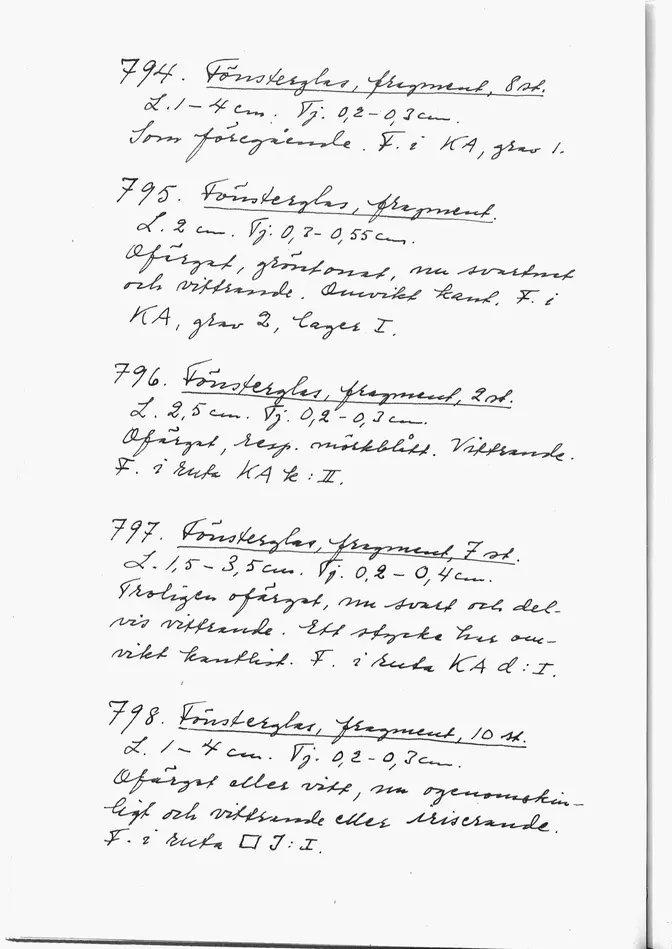 794. Fönsterglas, fragment, 8 st.
L. 1–4 cm. Tj. 0,2–0,3 cm.
Som föregående. F. i KA, grav 1.
795. Fönsterglas, fragment.
L. 2 cm. Tj. 0,3–0,55 cm.
Ofärgat, gröntonat, nu svartnat
och vittrande. Omvikt kant. F. i
KA, grav 2, lager I.
796. Fönsterglas, fragment, 2 st.
L. 2,5 cm. Tj. 0,2–0,3 cm.
Ofärgat, resp. mörkblått. Vittrande.
F. i ruta KA k:II.
797. Fönsterglas, fragment, 7 st.
L. 1,5–3,5 cm. Tj. 0,2–0,4 cm.
Troligen ofärgat, nu svart och del-
vis vittrande. Ett stycke har om-
vikt kantlist. F. i ruta KA d:I.
798. Fönsterglas, fragment, 10 st.
L. 1–4 cm. Tj. 0,2–0,3 cm.
Ofärgat eller vitt, nu ogenomskin-
ligt och vittrande eller iriserande.
F. i ruta □ J:I.